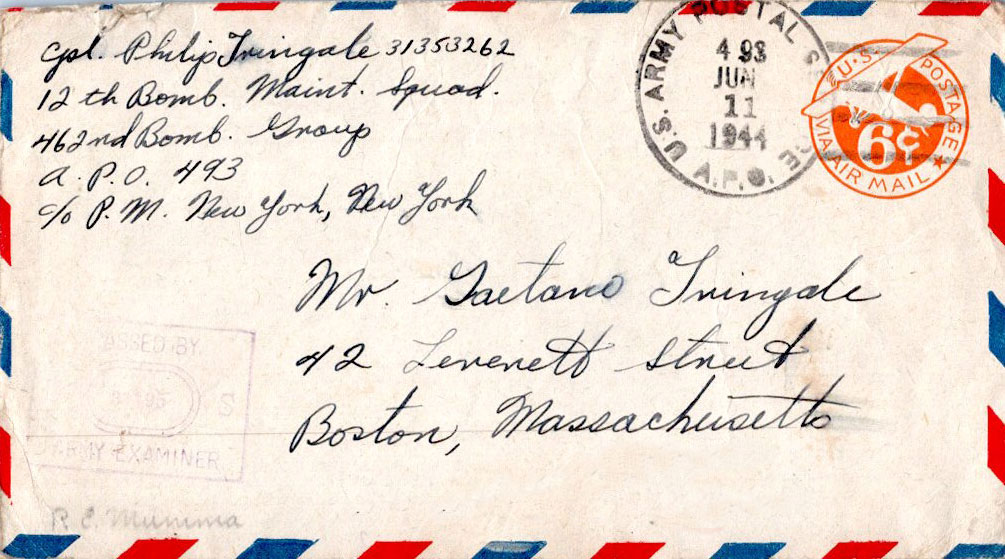 Cpl. Philip Tringale 31353262
12th Bomb. Maint. Squad.
462nd Bomb. Group
A.P.O. 493
c/o P.M. New York, New York
U.S. ARMY POSTAL
A.P.O.
493
JUN
11
1944
U.S. POSTAGE
6¢
VIA AIR MAIL
Mr. Gaetano Tringale
42 Leverett Street
Boston, Massachusetts
PASSED BY
S
ARMY EXAMINER
R C Mumma